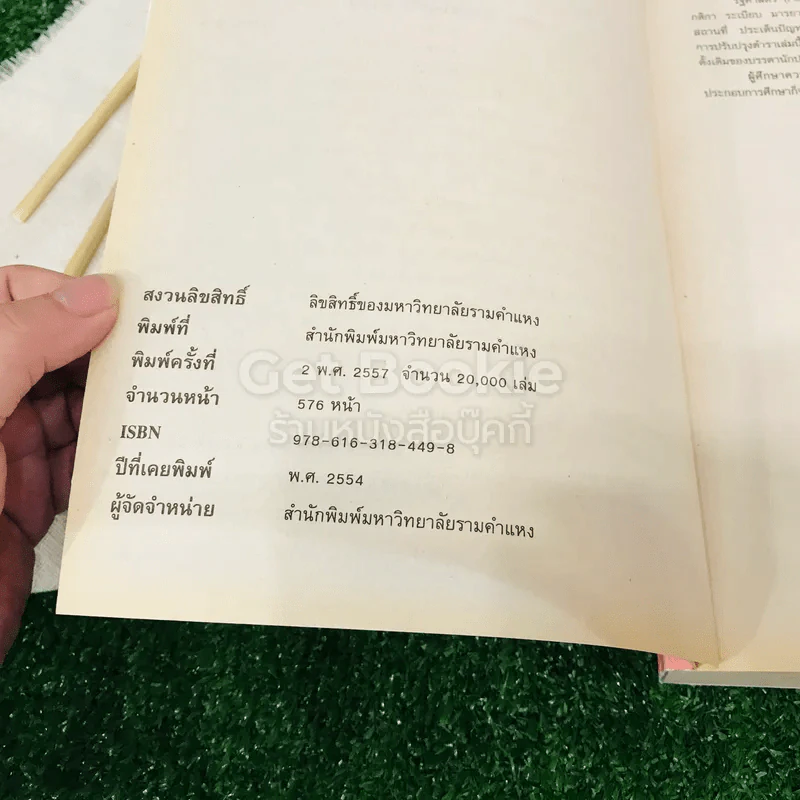 กติกา ระเบียบ มารยา
สถานที่ ประเด็นปัญห
การปรับปรุงตำราเล่มนี้
ดั้งเดิมของบรรดานักป
ผู้ศึกษาคว
ประกอบการศึกษาก็จ
สงวนลิขสิทธิ์ ลิขสิทธิ์ของมหาวิทยาลัยรามคำแหง
พิมพ์ที่ สำนักพิมพ์มหาวิทยาลัยรามคำแหง
พิมพ์ครั้งที่ 2 พ.ศ. 2557 จำนวน 20,000 เล่ม
จำนวนหน้า 576 หน้า
ISBN 978-616-318-449-8
ปีที่เคยพิมพ์ พ.ศ. 2554
ผู้จัดจำหน่าย สำนักพิมพ์มหาวิทยาลัยรามคำแหง
Get Bookie
ร้านหนังสือบุ๊คกี้